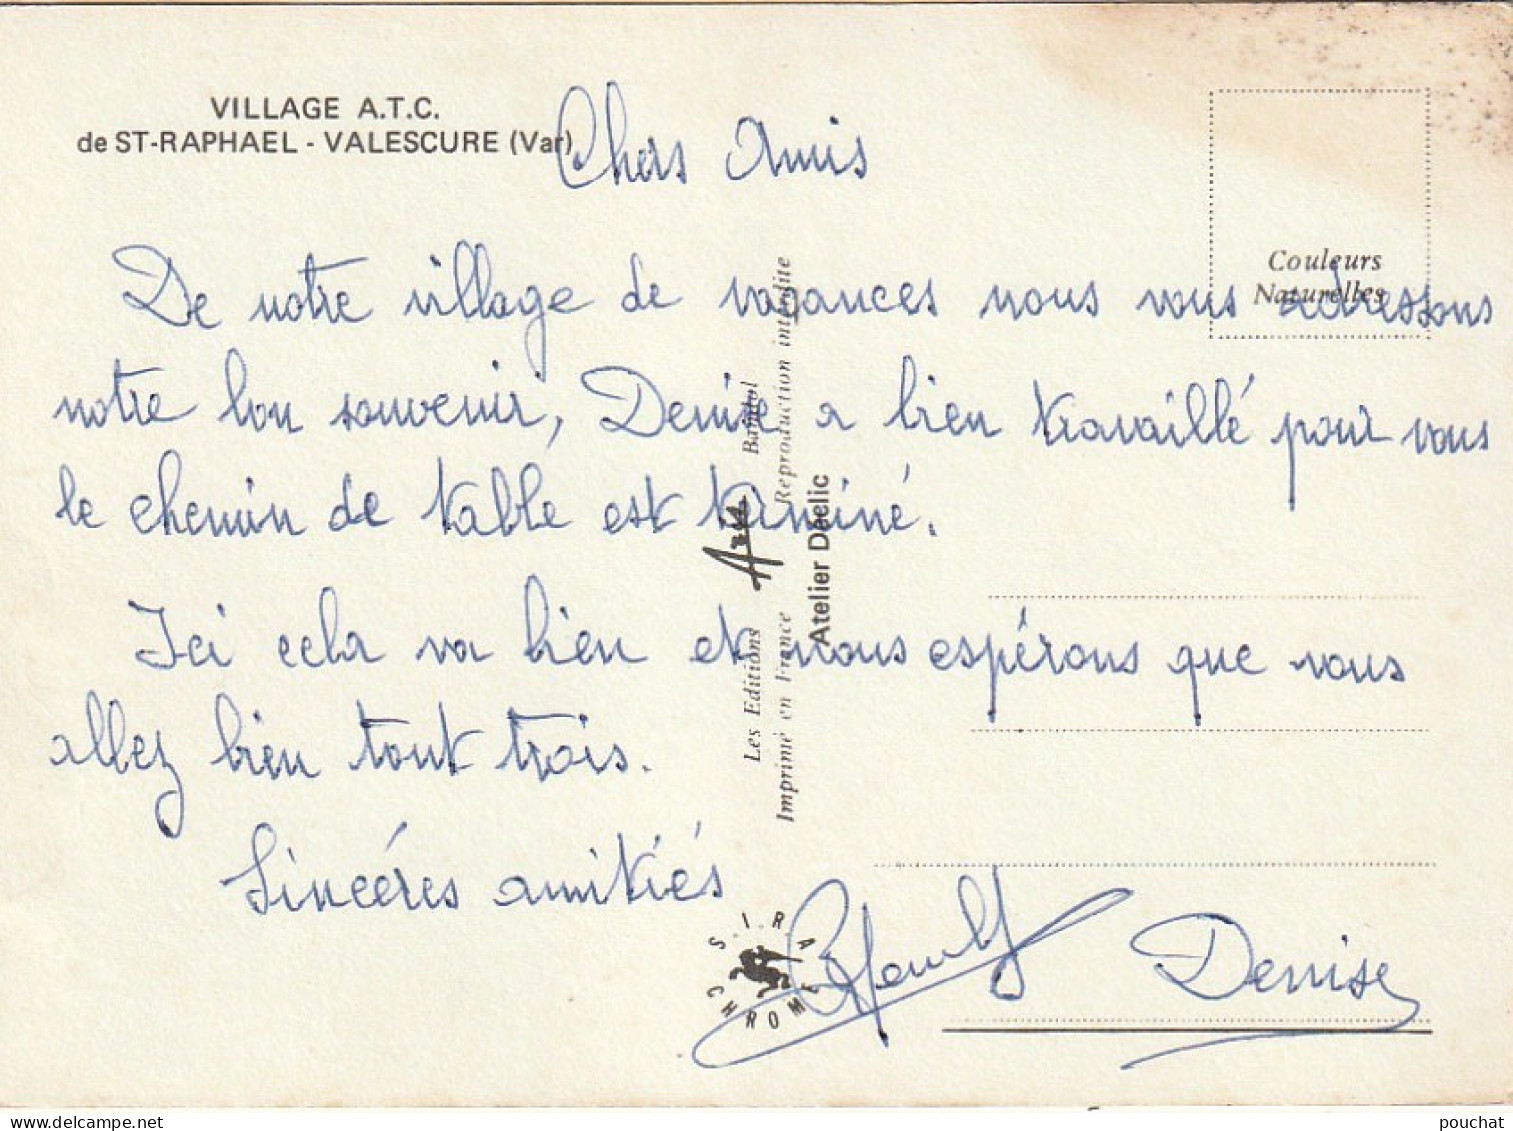 VILLAGE A.T.C.
de ST-RAPHAEL - VALESCURE (Var)
Chers Amis
Couleurs
Naturelles
De notre village de vacances nous vous adressons
notre bon souvenir, Denise a bien travaillé pour vous
le chemin de table est terminé.
Ici cela va bien et nous espérons que vous
allez bien tout trois.
Sincéres amitiés
Denise
Les Editions Aris Bandol
Imprimé en France Reproduction interdite
Atelier Déclic
S.I.R.A.
CHROME
delcampe.net
pouchat